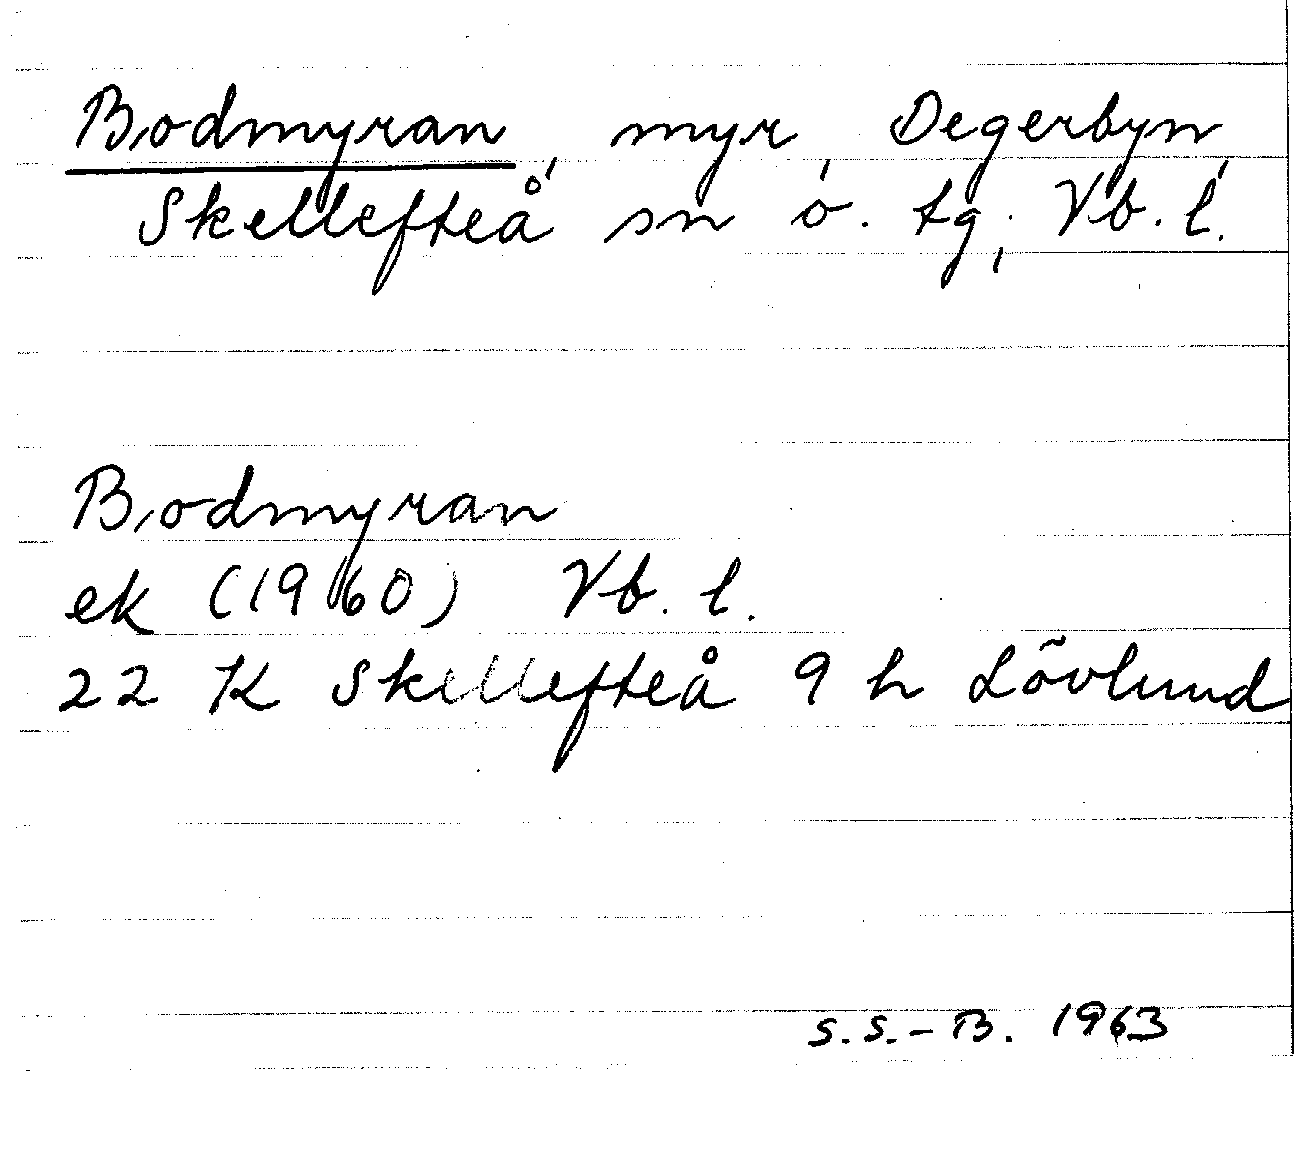 Bodmyran, myr, Degerbyn,
Skellefteå sn o. tg., Vb. l.
Bodmyran
ek (1960) Vb. l.
22 K Skellefteå 9 h Lövlund
S.S.-B. 1963